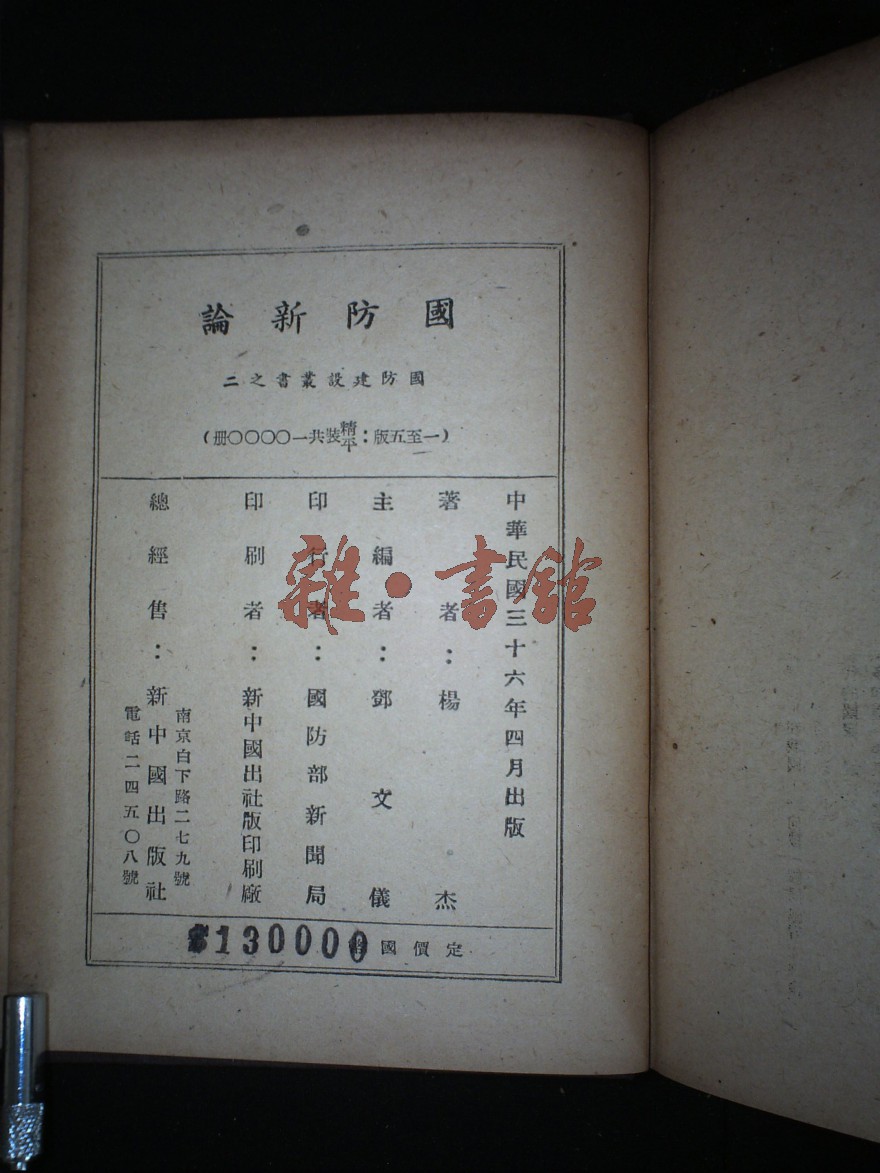 國防新論
國防建設叢書之二
(一至五版：精平裝共一〇〇〇〇册)
中華民國三十六年四月出版
著者：楊杰
主編者：鄧文儀
印行者：國防部新聞局
印刷者：新中國出社版印刷廠
總經售：新中國出版社
南京白下路二七九號
電話二四五〇八號
定價國
$130000
雜·書館